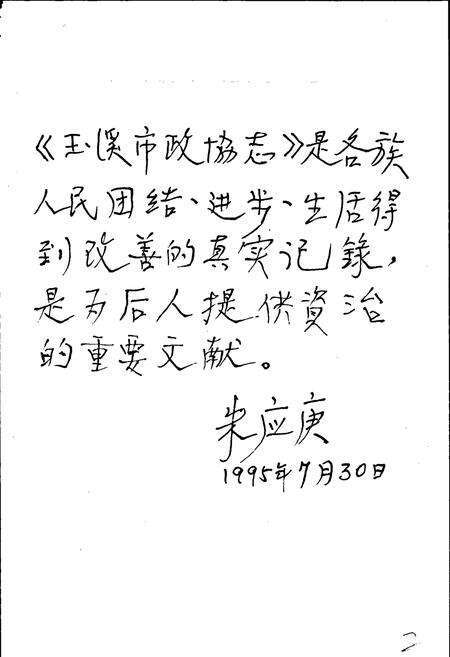 《玉溪市政協志》是各族
人民团结、进步、生活得
到改善的真实记錄,
是为后人提供資治
的重要文献。
朱应庚
1995年7月30日